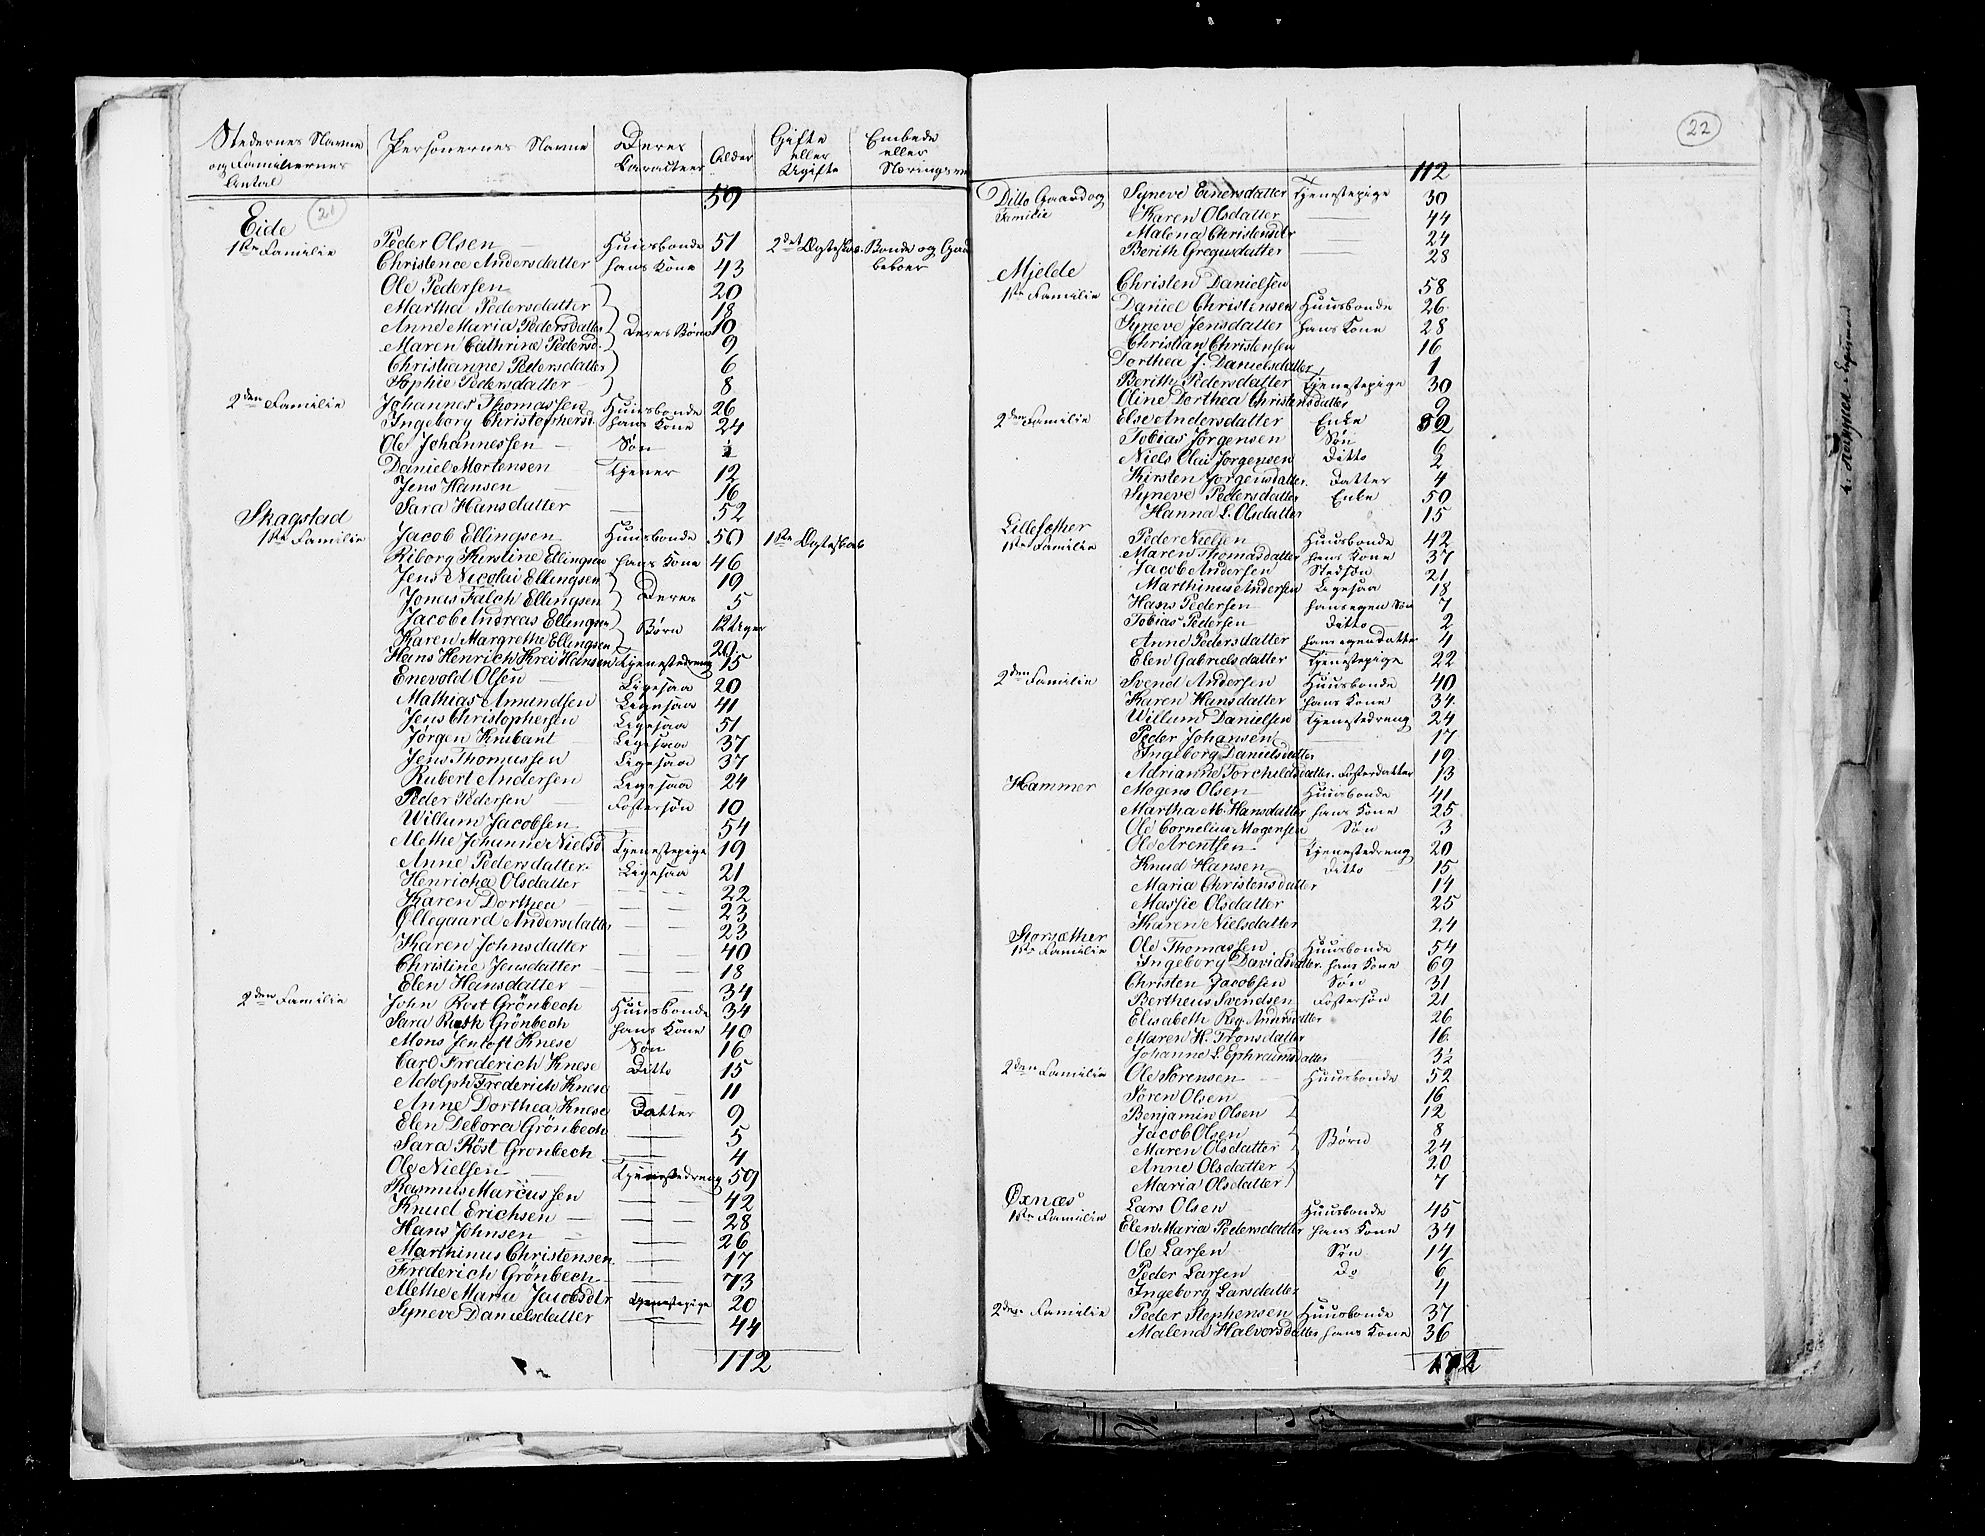 Stedernes Navne og Familiernes Antal | Personernes Navne | Deres Caracteer | Alder | Gifte eller Ugifte | Embede eller Næringsve
59
21
Eide
1ste Familie Peder Olsen Huusbonde 51 2det Ægteskab. Bonde og Gaard
Christence Andersdatter hans Kone 43 beboer
Ole Pedersen 20
Martha Pedersdatter 18
Anne Maria Pedersdatter Deres Børn 10
Maren Cathrine Pedersd. 9
Christianne Pedersdatter 6
Sophie Pedersdatter 8
2den Familie Johannes Thomassen Huusbonde 26
Ingeborg Christophersd. hans Kone 24
Ole Johannessen Søn
Daniel Mortensen Tjener 12
Jens Hansen 16
Sara Hansdatter 52
Skagstad
1ste Familie Jacob Ellingsen Huusbonde 50 1ste Ægteskab
Riborg Kirstine Ellingsen hans Kone 46
Jens Nicolai Ellingsen 19
Jonas Falch Ellingsen Deres 5
Jacob Andreas Ellingsen Børn 12 Uger
Karen Margrethe Ellingsen 20
Hans Henrich Krei Hansen Tjenestedreng 15
Enevold Olsen Ligesaa 20
Mathias Amundsen Ligesaa 41
Jens Christophersen Ligesaa 51
Jørgen Knubant Ligesaa 37
Jens Thomassen Ligesaa 37
Rubert Andersen Ligesaa 24
Peder Pedersen Fostersøn 10
Willum Jacobsen 54
Methe Johanne Nielsd. Tjenestepige 19
Anne Pedersdatter Ligesaa 21
Henricha Olsdatter 22
Karen Dorthea 23
Ollegaard Andersdatter 23
Karen Johnsdatter 40
Christine Jensdatter 18
Elen Hansdatter 34
2den Familie John Rost Grönbech Huusbonde 34
Sara Grönbech hans Kone 40
Mons Jentoft Knese Søn 16
Carl Frederich Knese Ditto 15
Adolph Frederich Knese 11
Anne Dorthea Knese Datter 9
Elen Debora Grönbech 5
Sara Röst Gronbech 4
Ole Nielsen Tjenestedreng 59
Rasmus Marcussen 42
Knud Erichsen 28
Hans Johnsen 26
Marthinus Christensen 17
Frederich Grönbech 73
Methe Maria Jacobsdtr Tjenestepige 20
Syneve Danielsdatter 44
112
22
112
Ditto Gaard og Familie Syneve Einersdatter Tjenestepige 30
Karen Olsdatter 44
Malena Christensdtr 24
Berith Gregusdatter 28
Mjelde
1ste Familie Christen Danielsen 58
Daniel Christensen Huusbonde 26
Syneve Jensdatter hans Kone 28
Christian Christensen 16
Dorthea J. Danielsdatter 1
Berith Pedersdatter Tjenestepige 30
Oline Dorthea Christensdatter 9
2den Familie Else Andersdatter Enke 32
Tobias Jörgensen Søn 6
Niels Olai Jorgensen Ditto 2
Kirsten Jorgensdatter. Datter 4
Syneve Pedersdatter Enke 59
Hanna L. Olsdatter 15
Lillesæther
1ste Familie Peder Nielsen Huusbonde 42
Maren Thomasdatter hans Kone 37
Jacob Andersen Stedsøn 21
Marthinus Andersen Ligesaa 18
Hans Pedersen hans egen Søn 7
Tobias Pedersen Ditto 2
Anne Pedersdatter hans egen datter 4
Elen Gabrielsdatter Tjenestepige 22
2den Familie Svend Andersen Huusbonde 40
Karen Hansdatter hans Kone 34
Willum Danielsen Tjenestedreng 24
Peder Johansen 17
Ingeborg Danielsdatter 19
Adrianne Torchildsdatter. Fosterdatter 13
Hammer Mogens Olsen Huusbonde 41
Martha M. Hansdatter hans Kone 25
Ole Cornelius Mogensen Søn 3
Ole Arentsen Tjenestedreng 20
Knud Hansen Ditto 15
Maria Christensdatter 14
Massie Olsdatter 25
Karen Nielsdatter 24
Storsæther
1ste Familie Ole Thomassen Huusbonde 54
Ingeborg Davidsdatter. hans Kone 69
Christen Jacobsen Søn 31
Bertheus Svendsen Fostersøn 21
Elisabeth Reg. Andersdatter 26
Maren K. Tronsdatter 16
Johanne L. Ephraimsdatter
2den Familie Ole Sörensen Huusbonde 52
Sören Olsen 16
Benjamin Olsen 12
Jacob Olsen 8
Maren Olsdatter Børn 24
Anne Olsdatter 20
Maria Olsdatter 7
Öxnæs
1ste Familie Lars Olsen Huusbonde 45
Elen Maria Pedersdatter hans Kone 34
Ole Larsen Søn 14
Peder Larsen Do 6
Ingeborg Larsdatter 4
2den Familie Peder Stephensen Huusbonde 37
Malena Halvorsdatter hans Kone 36
172